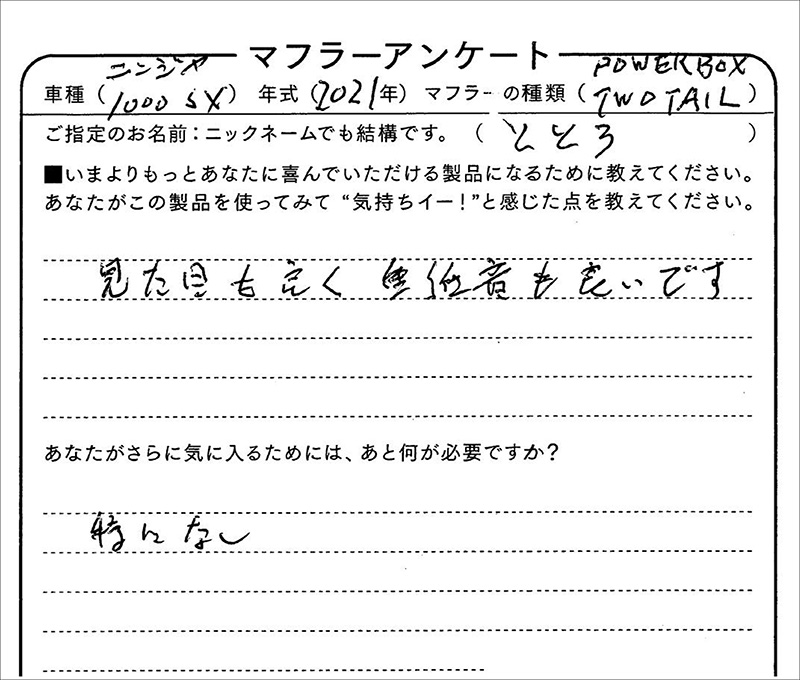 マフラーアンケート
車種（ニンジャ 1000 SX） 年式（2021年）マフラーの種類（POWERBOX TWOTAIL）
ご指定のお名前：ニックネームでも結構です。（ ととろ ）
■いまよりもっとあなたに喜んでいただける製品になるために教えてください。
あなたがこの製品を使ってみて“気持ちイー！”と感じた点を教えてください。
見た目も良く 重低音も良いです
あなたがさらに気に入るためには、あと何が必要ですか？
特になし